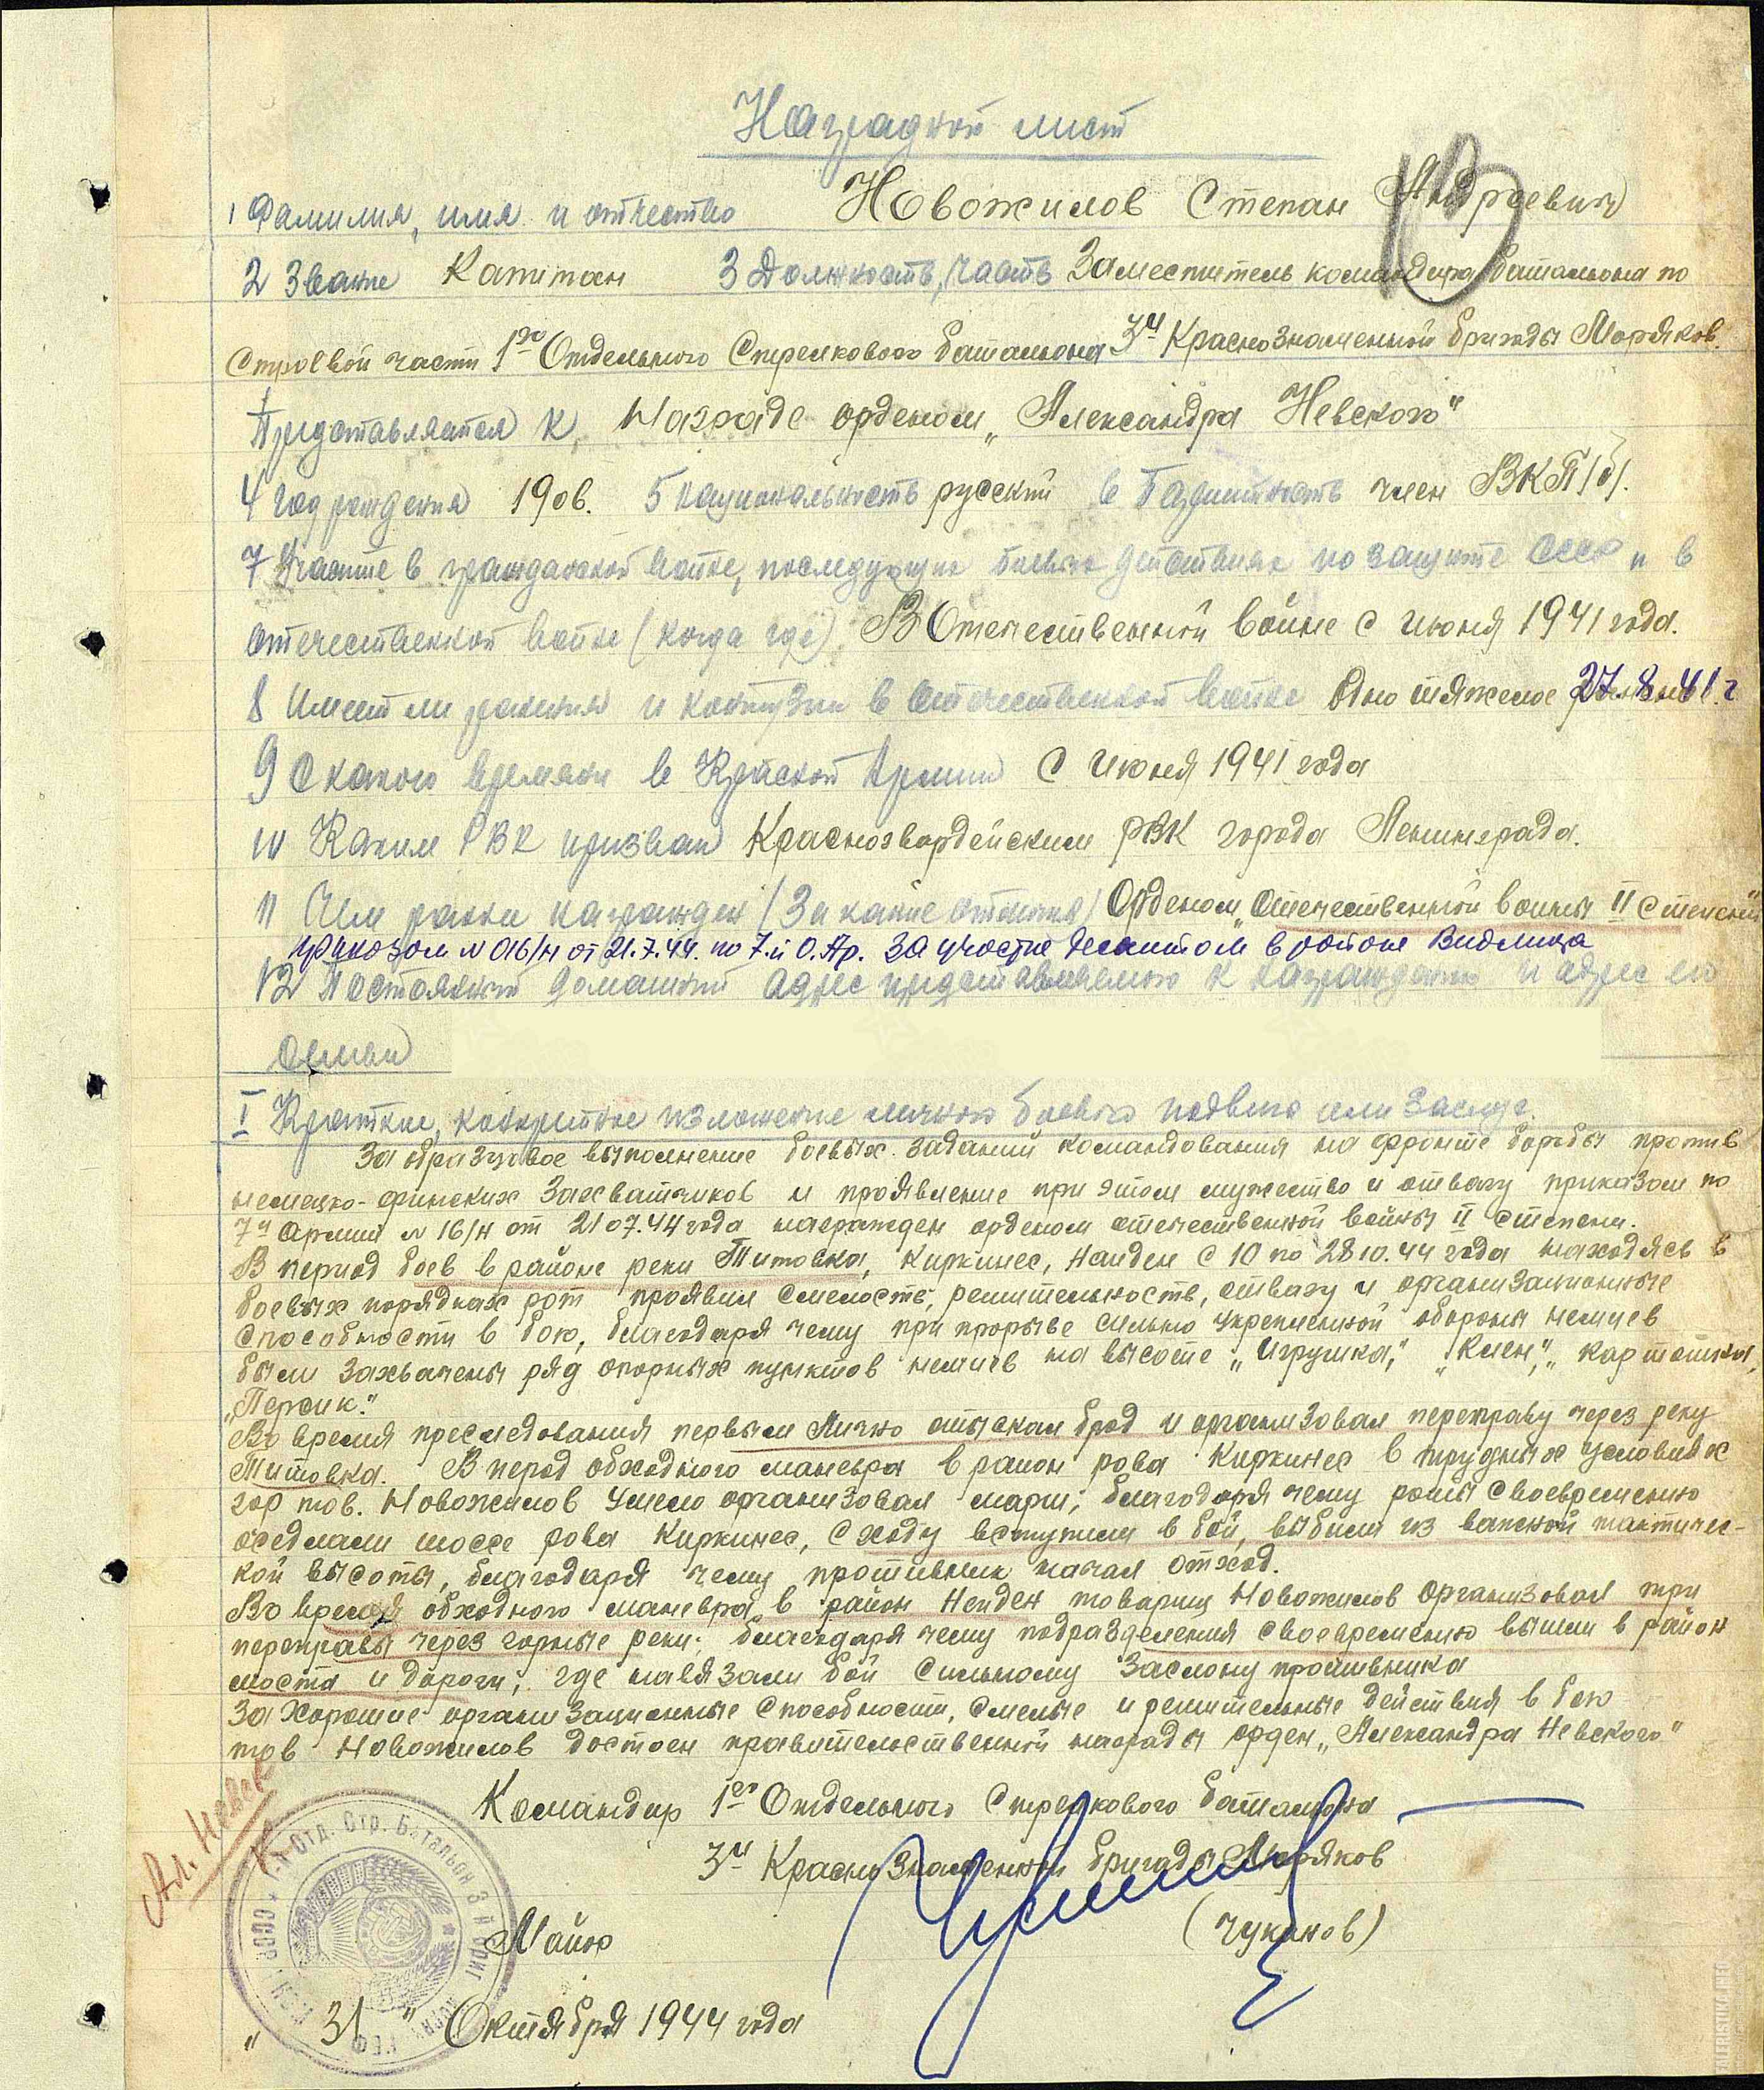 Наградной лист
1 Фамилия, имя и отчество Новожилов Степан Андреевич
2 Звание Капитан 3 Должность, часть Заместитель командира батальона по
строевой части 1го Отдельного Стрелкового батальона 3й Краснознаменной бригады Моряков.
Представляется к Награде орденом „Александра Невского"
4 Год рождения 1906. 5 национальность русский 6 Партийность член ВКП/б/.
7 Участие в гражданской войне, последующих боевых действиях по защите СССР и в
отечественной войне (когда где) В Отечественной войне с июня 1941 года.
8 Имеет ли ранения и контузии в отечественной войне Одно тяжелое 27.8.41 г
9 С какого времени в Красной Армии С июня 1941 года
10 Каким РВК призван Красногвардейским РВК города Ленинграда.
11 Чем ранее награжден (За какие отличия) Орденом „Отечественной войны II степени"
приказом N 016/н от 21.7.44. по 7.й О.Ар. За участие десантом в районе Видлица
12 Постоянный домашний адрес представляемого к награждению и адрес его
семьи
I Краткое, конкретное изложение личного боевого подвига или заслуг.
За образцовое выполнение боевых заданий командования на фронте борьбы против
немецко-финских захватчиков и проявление при этом мужество и отвагу приказом по
7й Армии N 16/н от 21 07.44 года награжден орденом отечественной войны II степени.
В период боев в районе реки Титовка, Киркинес, Найден с 10 по 28 10.44 года находясь в
боевых порядках рот проявил смелость, решительность, отвагу и организационные
способности в бою, благодаря чему при прорыве сильно укрепленной обороны немцев
были захвачены ряд опорных пунктов немцев на высоте „Игрушка", „Клен", „Картошка,
„Персик."
Во время преследования первым лично отыскал брод и организовал переправу через реку
Титовка. В перод обходного маневра в район рова Киркинес в трудных условиях
гор тов. Новожилов умело организовал марш; благодаря чему роты своевременно
оседлали шоссе рова Киркинес, сходу вступили в бой, выбили из важной тактичес-
кой высоты, благодаря чему противник начал отход.
Во время обходного маневра в район Нейден товарищ Новожилов организовал три
переправы через горные реки; благодаря чему подразделения своевременно вышли в район
моста и дороги; где навязали бой сильному заслону противника
За хорошие организационные способности, смелые и решительные действия в бою
тов Новожилов достоен правительственной награды орден „Александра Невского"
Командир 1го Отдельного Стрелкового батальона
3й Краснознаменной бригады Моряков
Ал. Невск
1-й Отд. Стр. Батальон 3-й бриг
СССР
Майор (Чуканов)
„31" Октября 1944 года